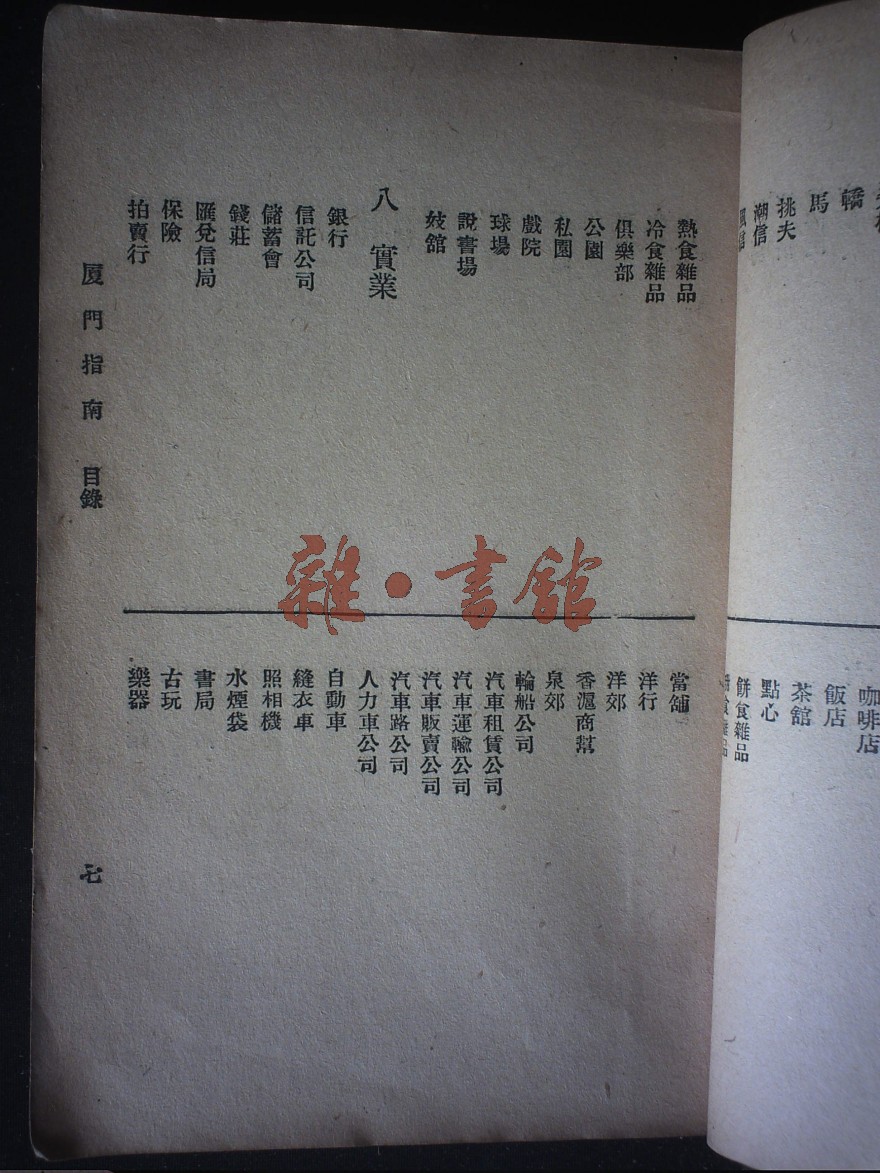 轎
馬
挑夫
潮信
咖啡店
飯店
茶館
點心
餅食雜品
熱食雜品
冷食雜品
俱樂部
公園
私園
戲院
球場
說書場
妓館
八 實業
銀行
信託公司
儲蓄會
錢莊
匯兌信局
保險
拍賣行
當舖
洋行
洋郊
香滬商幫
泉郊
輪船公司
汽車租賃公司
汽車運輸公司
汽車販賣公司
汽車路公司
人力車公司
自動車
縫衣車
照相機
水煙袋
書局
古玩
樂器
厦門指南 目錄
七
雜·書館